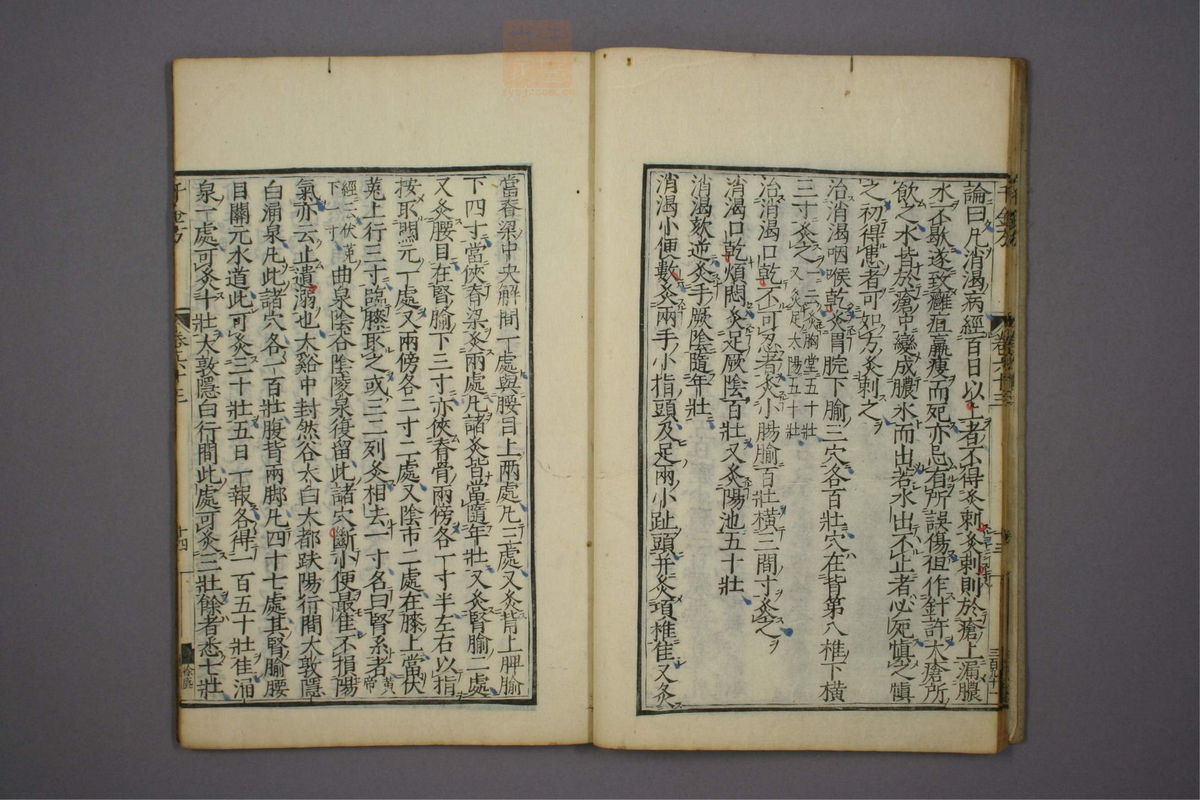 論曰凡消渴病經百日以上者不得灸刺灸刺則於瘡上漏膿
水不歇遂致癰疽羸瘦而死亦忌有所誤傷但作針許大瘡所
飲之水皆於瘡中變成膿水而出若水出不止者必死慎之慎
之初得患者可如方灸刺之
治消渴咽喉乾灸胃脘下腧三穴各百壯穴在背第八椎下橫
三寸灸之 又灸胸堂五十壯 又灸足太陽五十壯
治消渴口乾不可忍者灸小腸腧百壯橫三間寸灸之
消渴口乾煩悶灸足厥陰百壯又灸陽池五十壯
消渴欬逆灸手厥陰隨年壯
消渴小便數灸兩手小指頭及足兩小趾頭并灸項椎佳又灸
當脊梁中央解間一處與腰目上兩處凡三處又灸背上脾腧
下四寸當俠脊梁灸兩處凡諸灸皆當隨年壯又灸腎腧二處
又灸腰目在腎腧下三寸亦俠脊骨兩傍各一寸半左右以指
按取關元一處又兩傍各二寸二處又陰市二處在膝上當伏
菟上行三寸臨膝取之或三二列灸相去一寸名曰腎系者 黃帝
經云伏菟下一寸 曲泉陰谷陰陵泉復留此諸穴斷小便最佳不損陽
氣亦云止遺溺也太谿中封然谷太白大都趺陽行間大敦隱
白涌泉凡此諸穴各一百壯腹背兩腳凡四十七處其腎腧腰
目關元水道此可灸三十壯五日一報各得一百五十壯佳涌
泉一處可灸十壯大敦隱白行間此處可灸三壯餘者悉七壯
十四